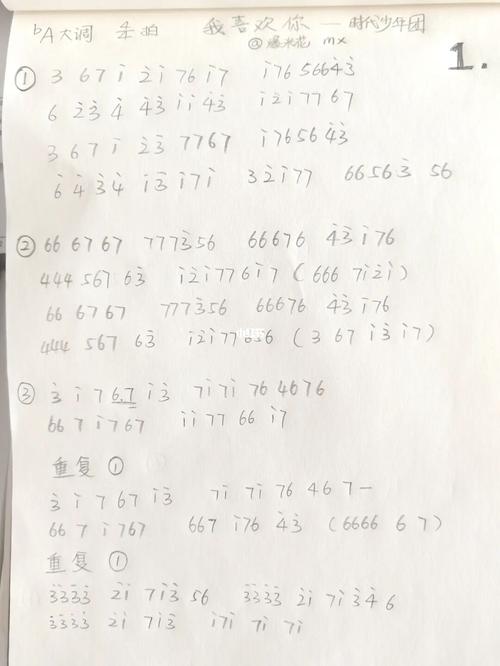 bA大调 4/4拍 我喜欢你 — 时代少年团
@爆米花 mx
1.
① 3 6 7 i̇ 2̇ i̇ 7 6 i̇ 7 i̇ 7 6 5 6 6 4̇ 3̇
6 2̇ 3̇ 4̇ 4̇ 3̇ i̇ i̇ 4̇ 3̇ i̇ 2̇ i̇ 7 7 6 7
3 6 7 i̇ 2̇ 3̇ 7 7 6 7 i̇ 7 6 5 6 4̇ 3̇
6̇ 4̇ 3̇ 4̇ i̇ 3̇ i̇ 7 i̇ 3 2̇ i̇ 7 7 6 6 5 6 3̇ 5 6
② 66 67 67 777 3̇ 56 66676 4̇ 3̇ i̇ 76
444 567 6 3̇ i̇ 2̇ i̇ 7 7 6 i̇ 7 ( 666 7 i̇ 2̇ i̇ )
66 67 67 777 3̇ 56 66676 4̇ 3̇ i̇ 76
444 567 6 3̇ i̇ 2̇ i̇ 7 7 6 5 6 ( 3 67 i̇ 3̇ i̇ 7 )
③ 3̇ i̇ 7 6.7 i̇ 3̇ 7 i̇ 7 i̇ 76 4676
66 7 i̇ 7 67 i̇ i̇ 77 66 i̇ 7
重复 ①
3̇ i̇ 7 67 i̇ 3̇ 7 i̇ 7 i̇ 76 46 7 —
66 7 i̇ 767 667 i̇ 76 4̇ 3̇ ( 6666 6 7 )
重复 ①
3̇ 3̇ 3̇ 3̇ 2̇ i̇ 7 i̇ 3̇ 56 3̇ 3̇ 3̇ 3̇ 2̇ i̇ 7 i̇ 3̇ 4̇ 6
3̇ 3̇ 3̇ 3̇ 2̇ i̇ 7 i̇ 3̇ i̇ 7 i̇ 7 i̇ 7 i̇